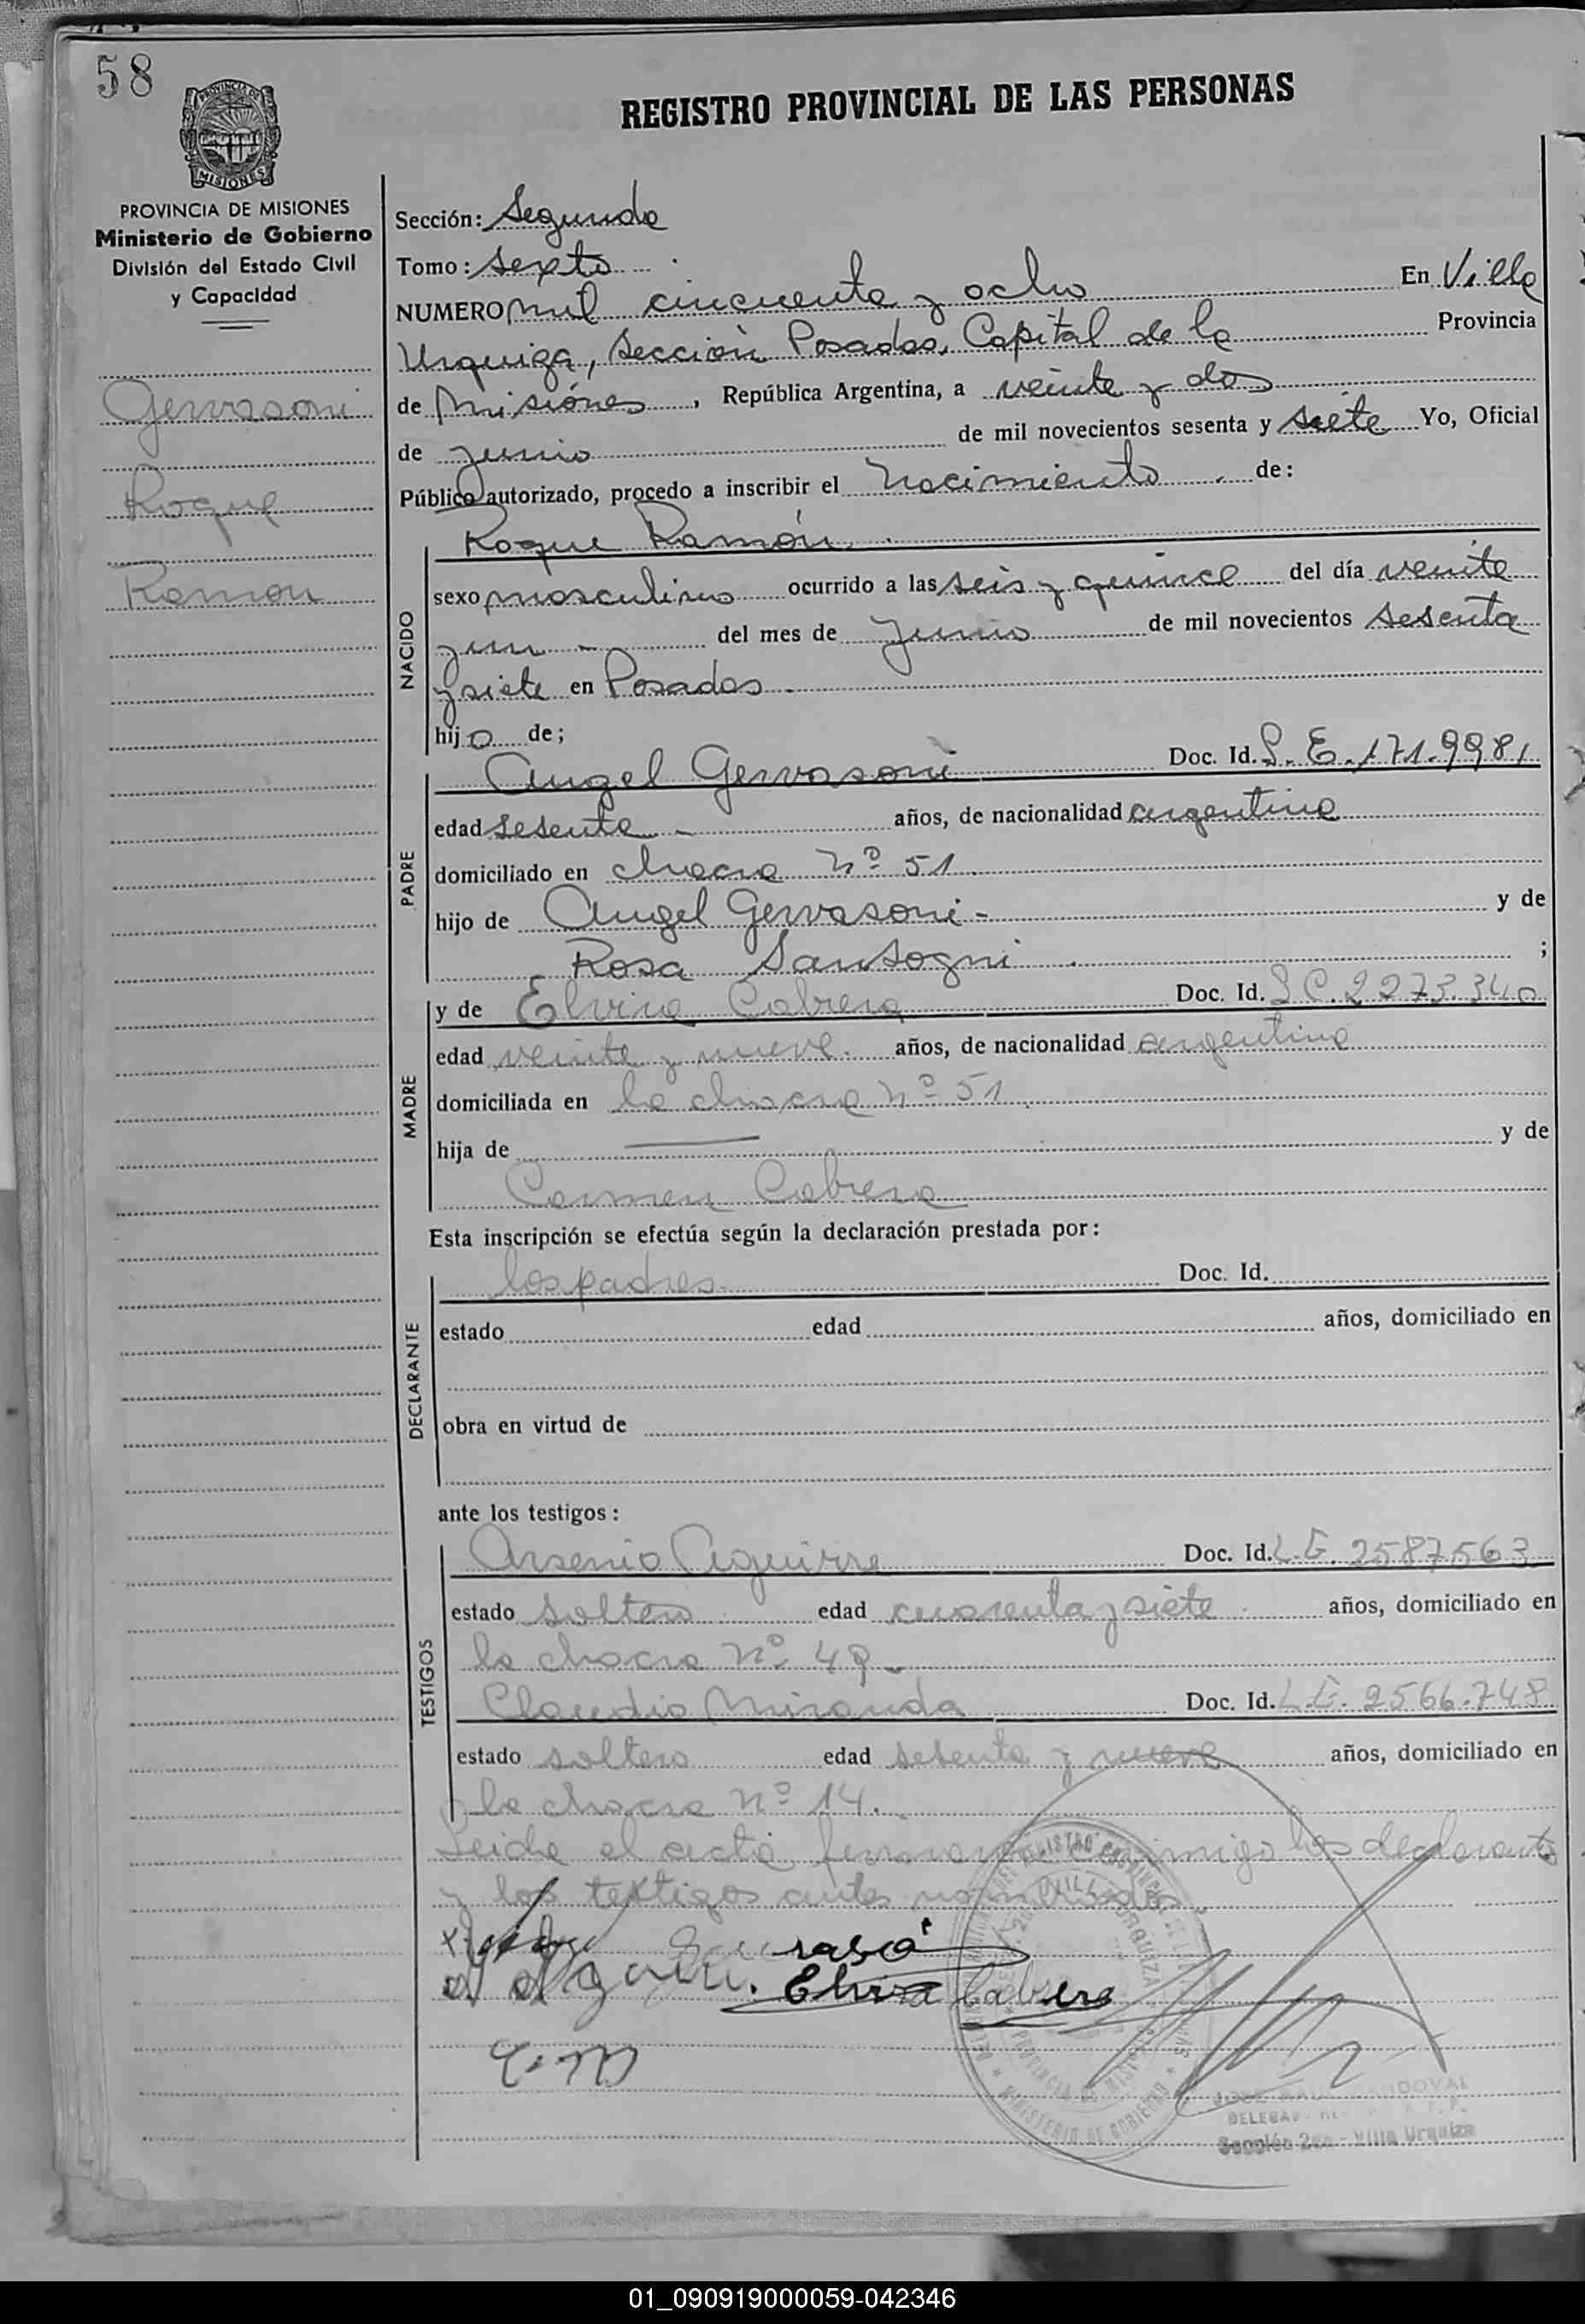 58
REGISTRO PROVINCIAL DE LAS PERSONAS
PROVINCIA DE MISIONES
Ministerio de Gobierno
División del Estado Civil
y Capacidad
Gervasoni
Roque
Ramon
Sección: Segunda
Tomo: Sexto
NUMERO mil cincuenta y ocho En Villa
Urquiza, Sección Posadas, Capital de la Provincia
de Misiones, República Argentina, a veinte y dos
de junio de mil novecientos sesenta y siete Yo, Oficial
Público autorizado, procedo a inscribir el nacimiento de:
Roque Ramón
NACIDO
sexo masculino ocurrido a las seis y quince del día veinte
y un del mes de Junio de mil novecientos sesenta
y siete en Posadas
hijo de;
PADRE
Angel Gervasoni Doc. Id. L. E. 171.9981
edad sesenta años, de nacionalidad argentina
domiciliado en chacra Nº 51
hijo de Angel Gervasoni - y de
Rosa Santogni ;
MADRE
y de Elvira Cabrera Doc. Id. L C. 2273.340
edad veinte y nueve años, de nacionalidad argentina
domiciliada en la chacra Nº 51
hija de y de
Carmen Cabrera
Esta inscripción se efectúa según la declaración prestada por:
DECLARANTE
los padres Doc. Id.
estado edad años, domiciliado en
obra en virtud de
ante los testigos:
TESTIGOS
Arsenio Aguirre Doc. Id. L.E. 2587563
estado soltero edad cuarenta y siete años, domiciliado en
la chacra Nº 49
Claudio Miranda Doc. Id. L.E. 2566.748
estado soltero edad sesenta y nueve años, domiciliado en
la chacra Nº 14.
Leida el acta firman conmigo los declarantes
y los testigos antes nombrados
Elvira Cabrera
C. M
SANDOVAL
Sección 2da - Villa Urquiza
01_090919000059-042346